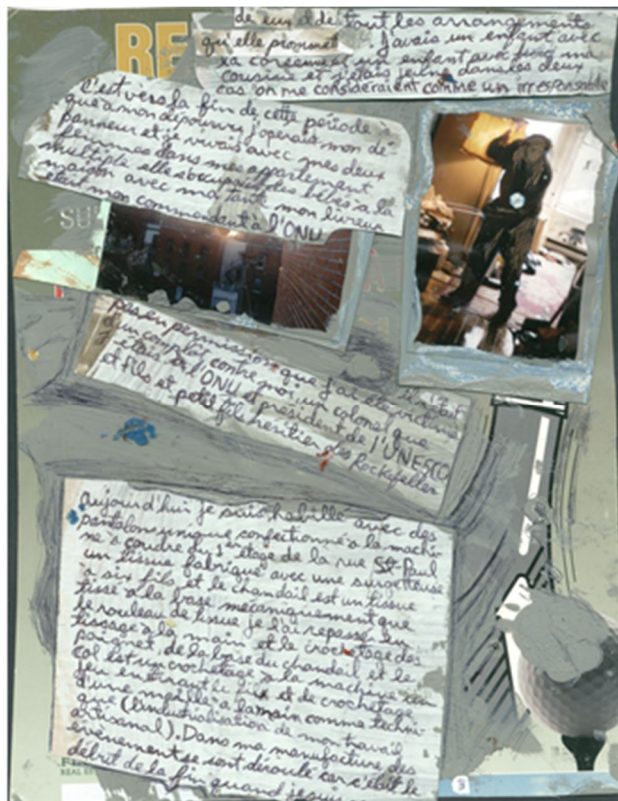 RE
de eux et de tout les arrangements
qu'elle prommet javais un enfant avec
sa et un enfant avec ma
cousine et j'étais jeune dans les deux
cas on me considéraient comme un irresponsable
C'est vers la fin de cette période
que a mon dépourvu j'operais mon dé
panneur et je vivais avec mes deux
femmes dans mes appartement
multiple elle s'occupait des bébés a la
maison avec ma tant mon livreur
étant mon commendant à l'ONU
SU
pas en permission que j'ai été victime
d'un complot contre moi, un colonel que
j'étais à l'ONU et président de l'UNESCO
et fils et petit fils héritier des Rockefeller
aujourd'hui je suis habillé avec des
pantalon unique confectionné a la machi
ne à coudre du étage de la rue St-Paul
un tissue fabriqué avec une surgetteuse
a six fils et le chandail est un tissue
tissé a la base mécaniquement que
le rouleau de tissue je l'ai repasser en
tissage a la main et le crochetage des
poignet, de la base du chandail et le
col est un crochetage a la machine
jeu en tirant le fil et de crochetage
d'une maille a la main comme techni
que (l'industrialisation de mon travail
artisanal). Dans ma manufacture des
évènement se sont déroulé car c'était le
début de la fin quand je suis
REAL ES
3